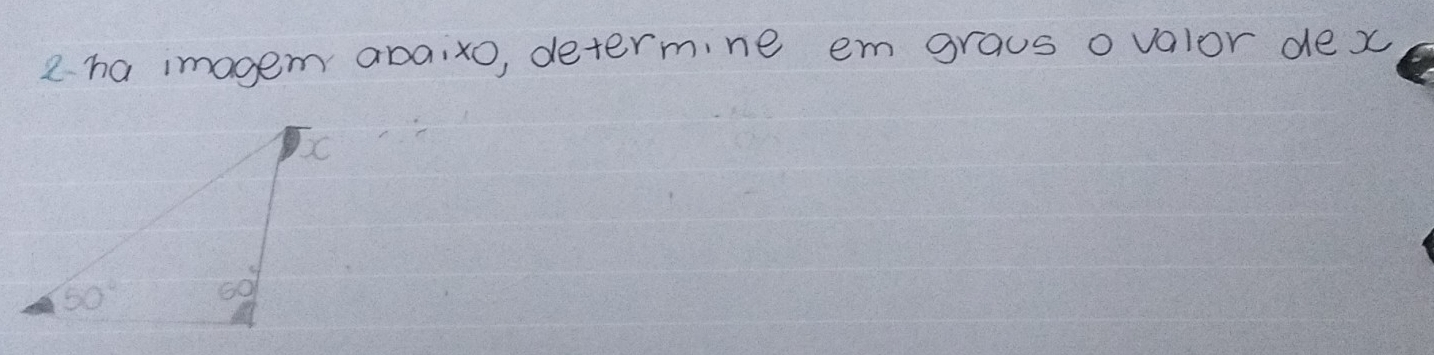 2- na imagem abaixo, determine em graus o valor de x
x
50° 60°